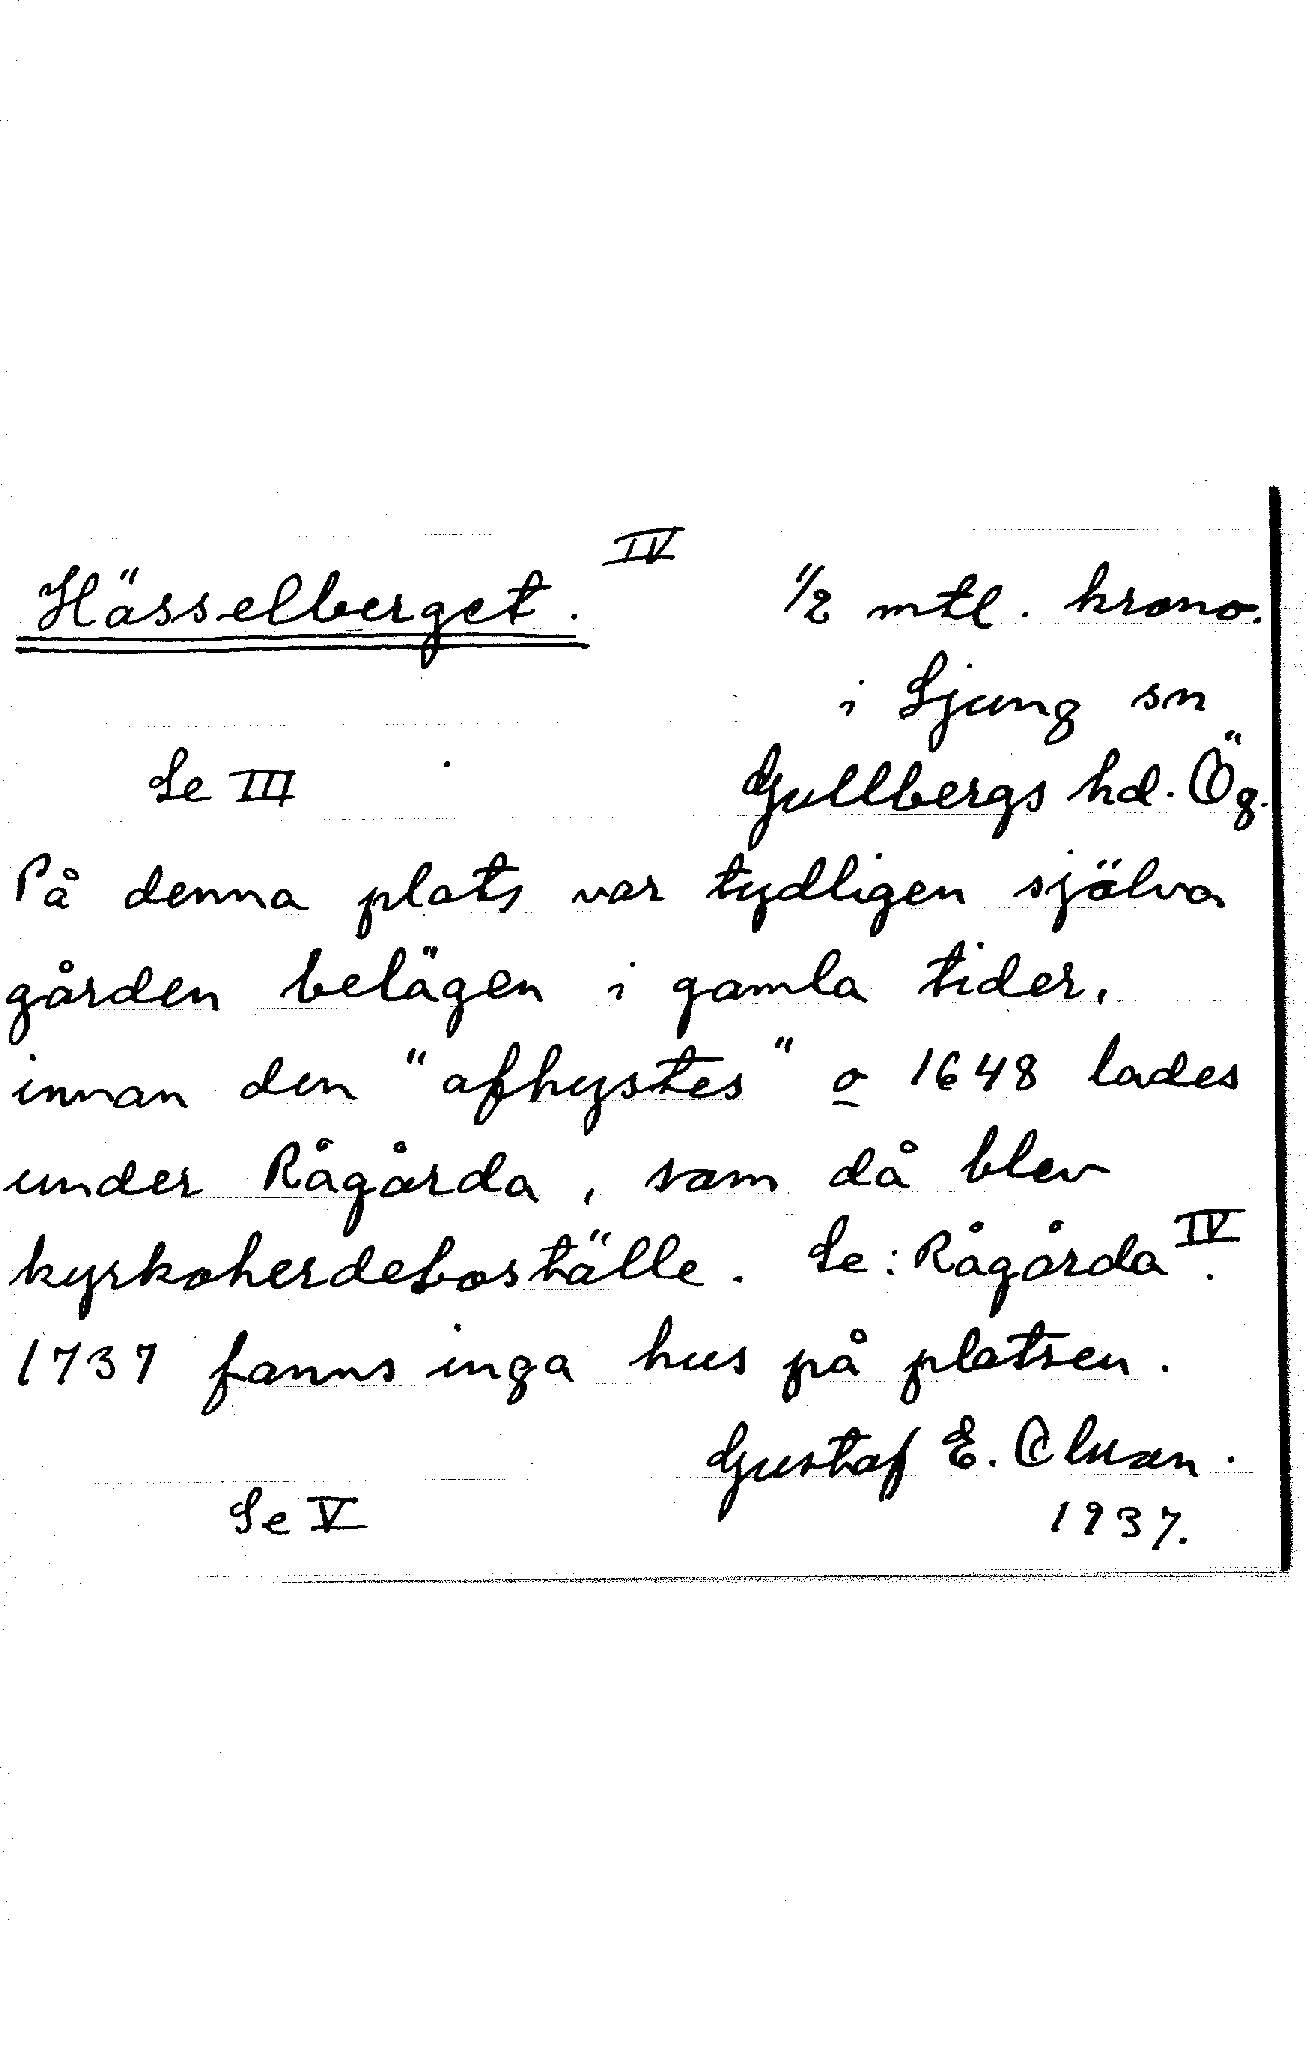 Hässelberget. IV 1/2 mtl. krono.
i Ljung sn
Se III Gullbergs hd. Ög.
På denna plats var tydligen själva
gården belägen i gamla tider,
innan den "afhystes" o 1648 lades
under Rågårda, som då blev
kyrkoherdeboställe. Se: Rågårda IV.
1737 fanns inga hus på platsen.
Gustaf E.
Se V 1937.